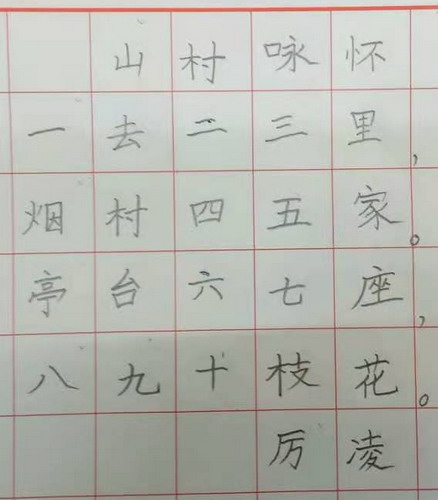 山村咏怀
一去二三里，
烟村四五家。
亭台六七座，
八九十枝花。
厉凌